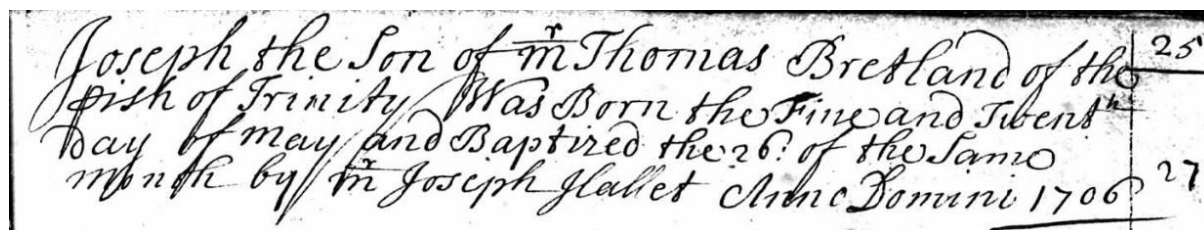 Joseph the Son of mr Thomas Bretland of the 25
pish of Trinity Was Born the Fine and Twenth
day of may and Baptized the 26: of the Same
month by mr Joseph Hallet Anno Domini 1706 27